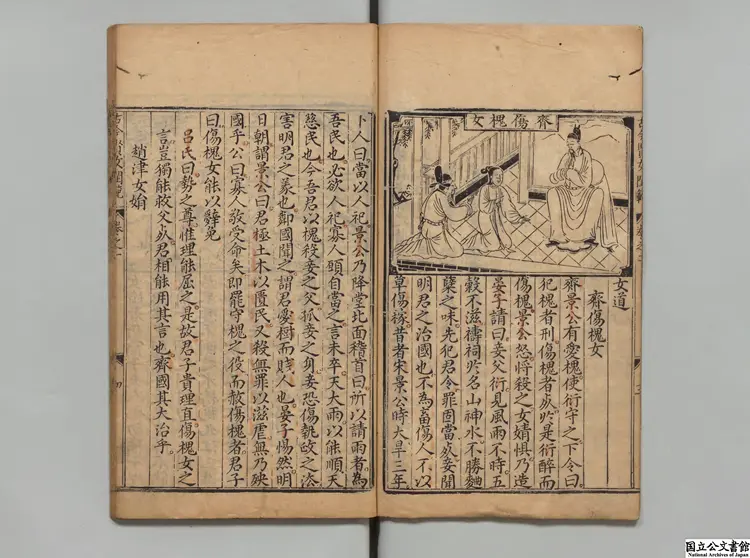 齊傷槐女
女道
齊傷槐女
齊景公有愛槐使衍守之下令曰
犯槐者刑傷槐者死於是衍醉而
傷槐景公怒將殺之女婧懼乃造
晏子請曰妾父衍見風雨不時五
穀不滋禱祠於名山神水不勝麯
糵之味先犯君令罪固當死妾聞
明君之治國也不為畜傷人不以
草傷稼昔者宋景公時大旱三年
卜人曰當以人祀景公乃降堂北面稽首曰所以請雨者為
吾民也必欲人祀寡人頭自當之言未卒天大雨以能順天
慈民也今吾君以槐殺妾之父孤妾之身妾恐傷執政之法
害明君之義也鄰國聞之謂君愛樹而賤人也晏子惕然明
日朝謂景公曰君極土木以匱民又殺無罪以滋虐無乃殃
國乎公曰寡人敬受命矣即罷守槐之役而赦傷槐者君子
曰傷槐女能以辭免
呂氏曰勢之尊惟理能屈之是故君子貴理直傷槐女之
言豈獨能救父死君相能用其言也齊國其大治乎
趙津女娟
国立公文書館
National Archives of Japan